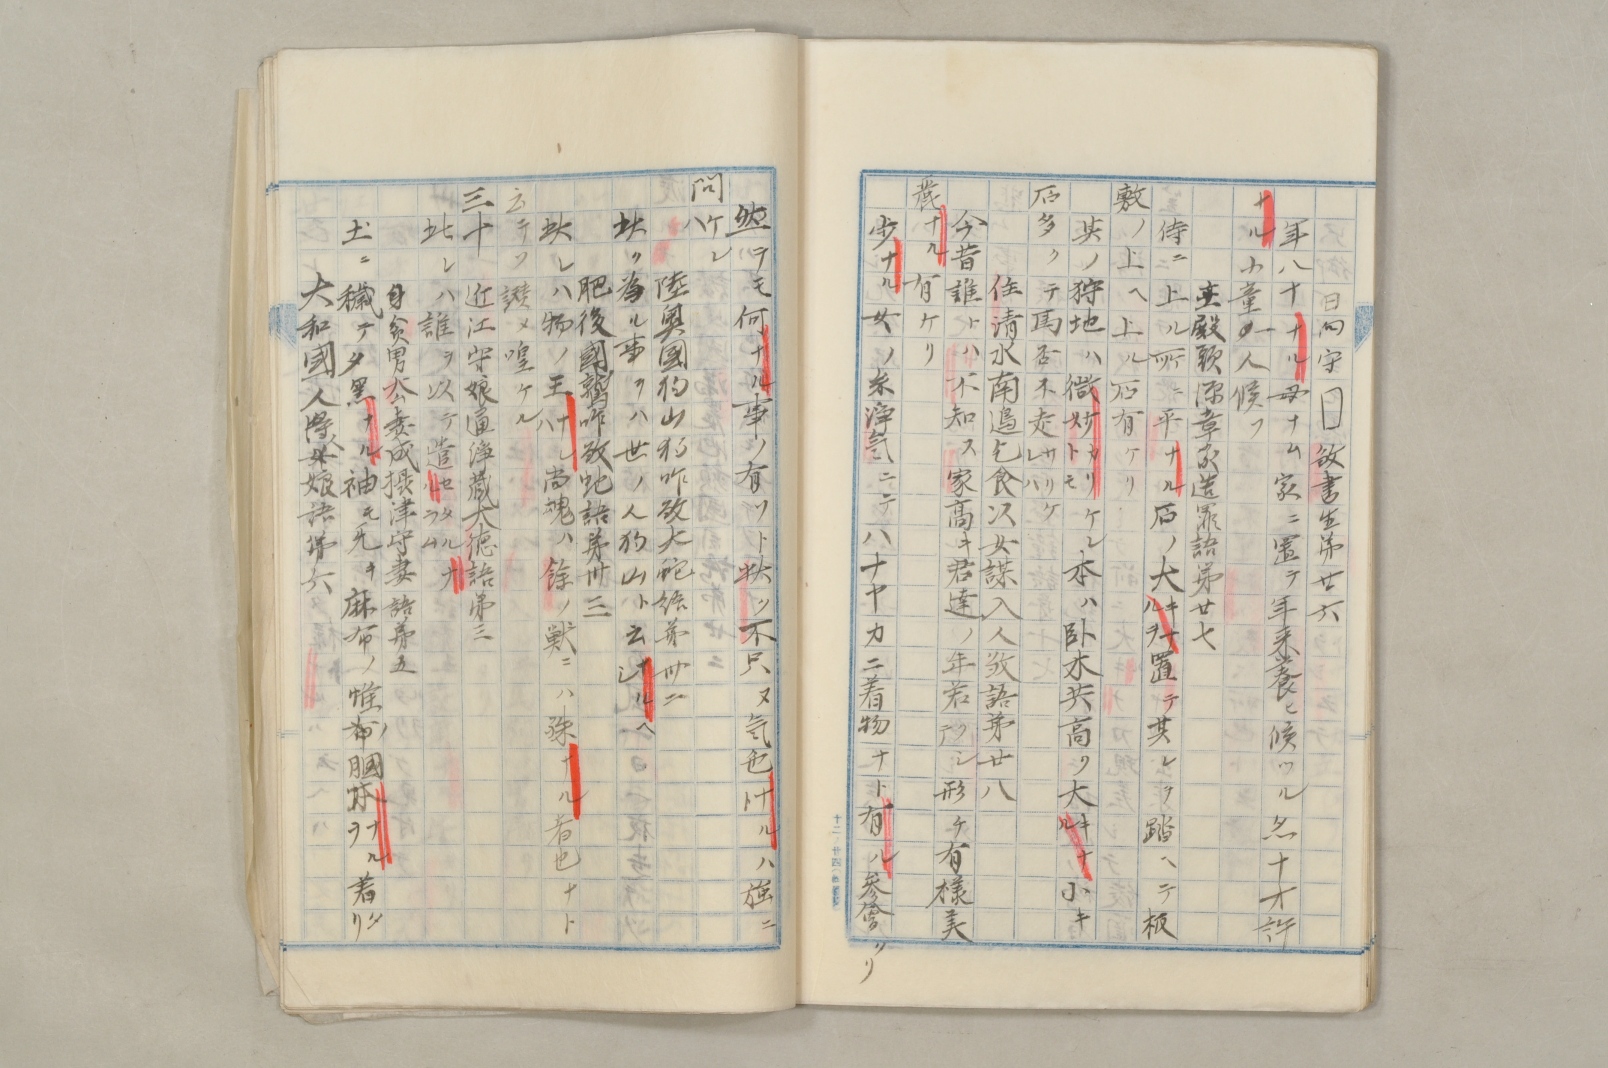 日向守□欲書生第廿六
年八十ナル母ナム家ニ置テ年来養ヒ候ツル名十才許
ナル小童一人候フ
主殿頭源章家造罪語第廿七
侍ニ上ル所ニ平ナル石ノ大キナルヲ置テ其レヲ踏ヘテ板
敷ノ上ヘ上ル石有ケリ
其ノ狩地ハ微妙カリケレトモ本ハ卧木共高ク大キナル小キ
石多クテ馬否不走サリケレハ
住清水南邊乞食以女謀入人敬語第廿八
今昔誰トハ不知ス家高キ君達ノ年若クシテ形チ有様美
麗ナル有ケリ
歩ナル女ノ糸浄気ニテハナヤカニ着物ナト有ル参會リ
然テモ何ナル事ノ有ツト狀ツ不只ヌ気也トナルハ強ニ
問ハケレ
陸奥國狗山狗咋敬大蛇語第卅二
狀ヲ為ル事ヲハ世ノ人狗山ト云ナルヘシ
肥後國鷲咋敬蛇語第卅三
狀レハ物ノ王ナレハ尚魂ハ餘ノ獣ニハ殊ナル者也ナト
云テソ讃メ喤ケル
三十　近江守娘通浄蔵大徳語第三
此レハ誰ヲ以テ造セタルナラム
身貧男去妻成摂津守妻語第五
土ニ穢テタ黒ナル袖モ无キ麻布ノ帷ノ膕本ナルヲ着タリ
大和國人得人娘語第六